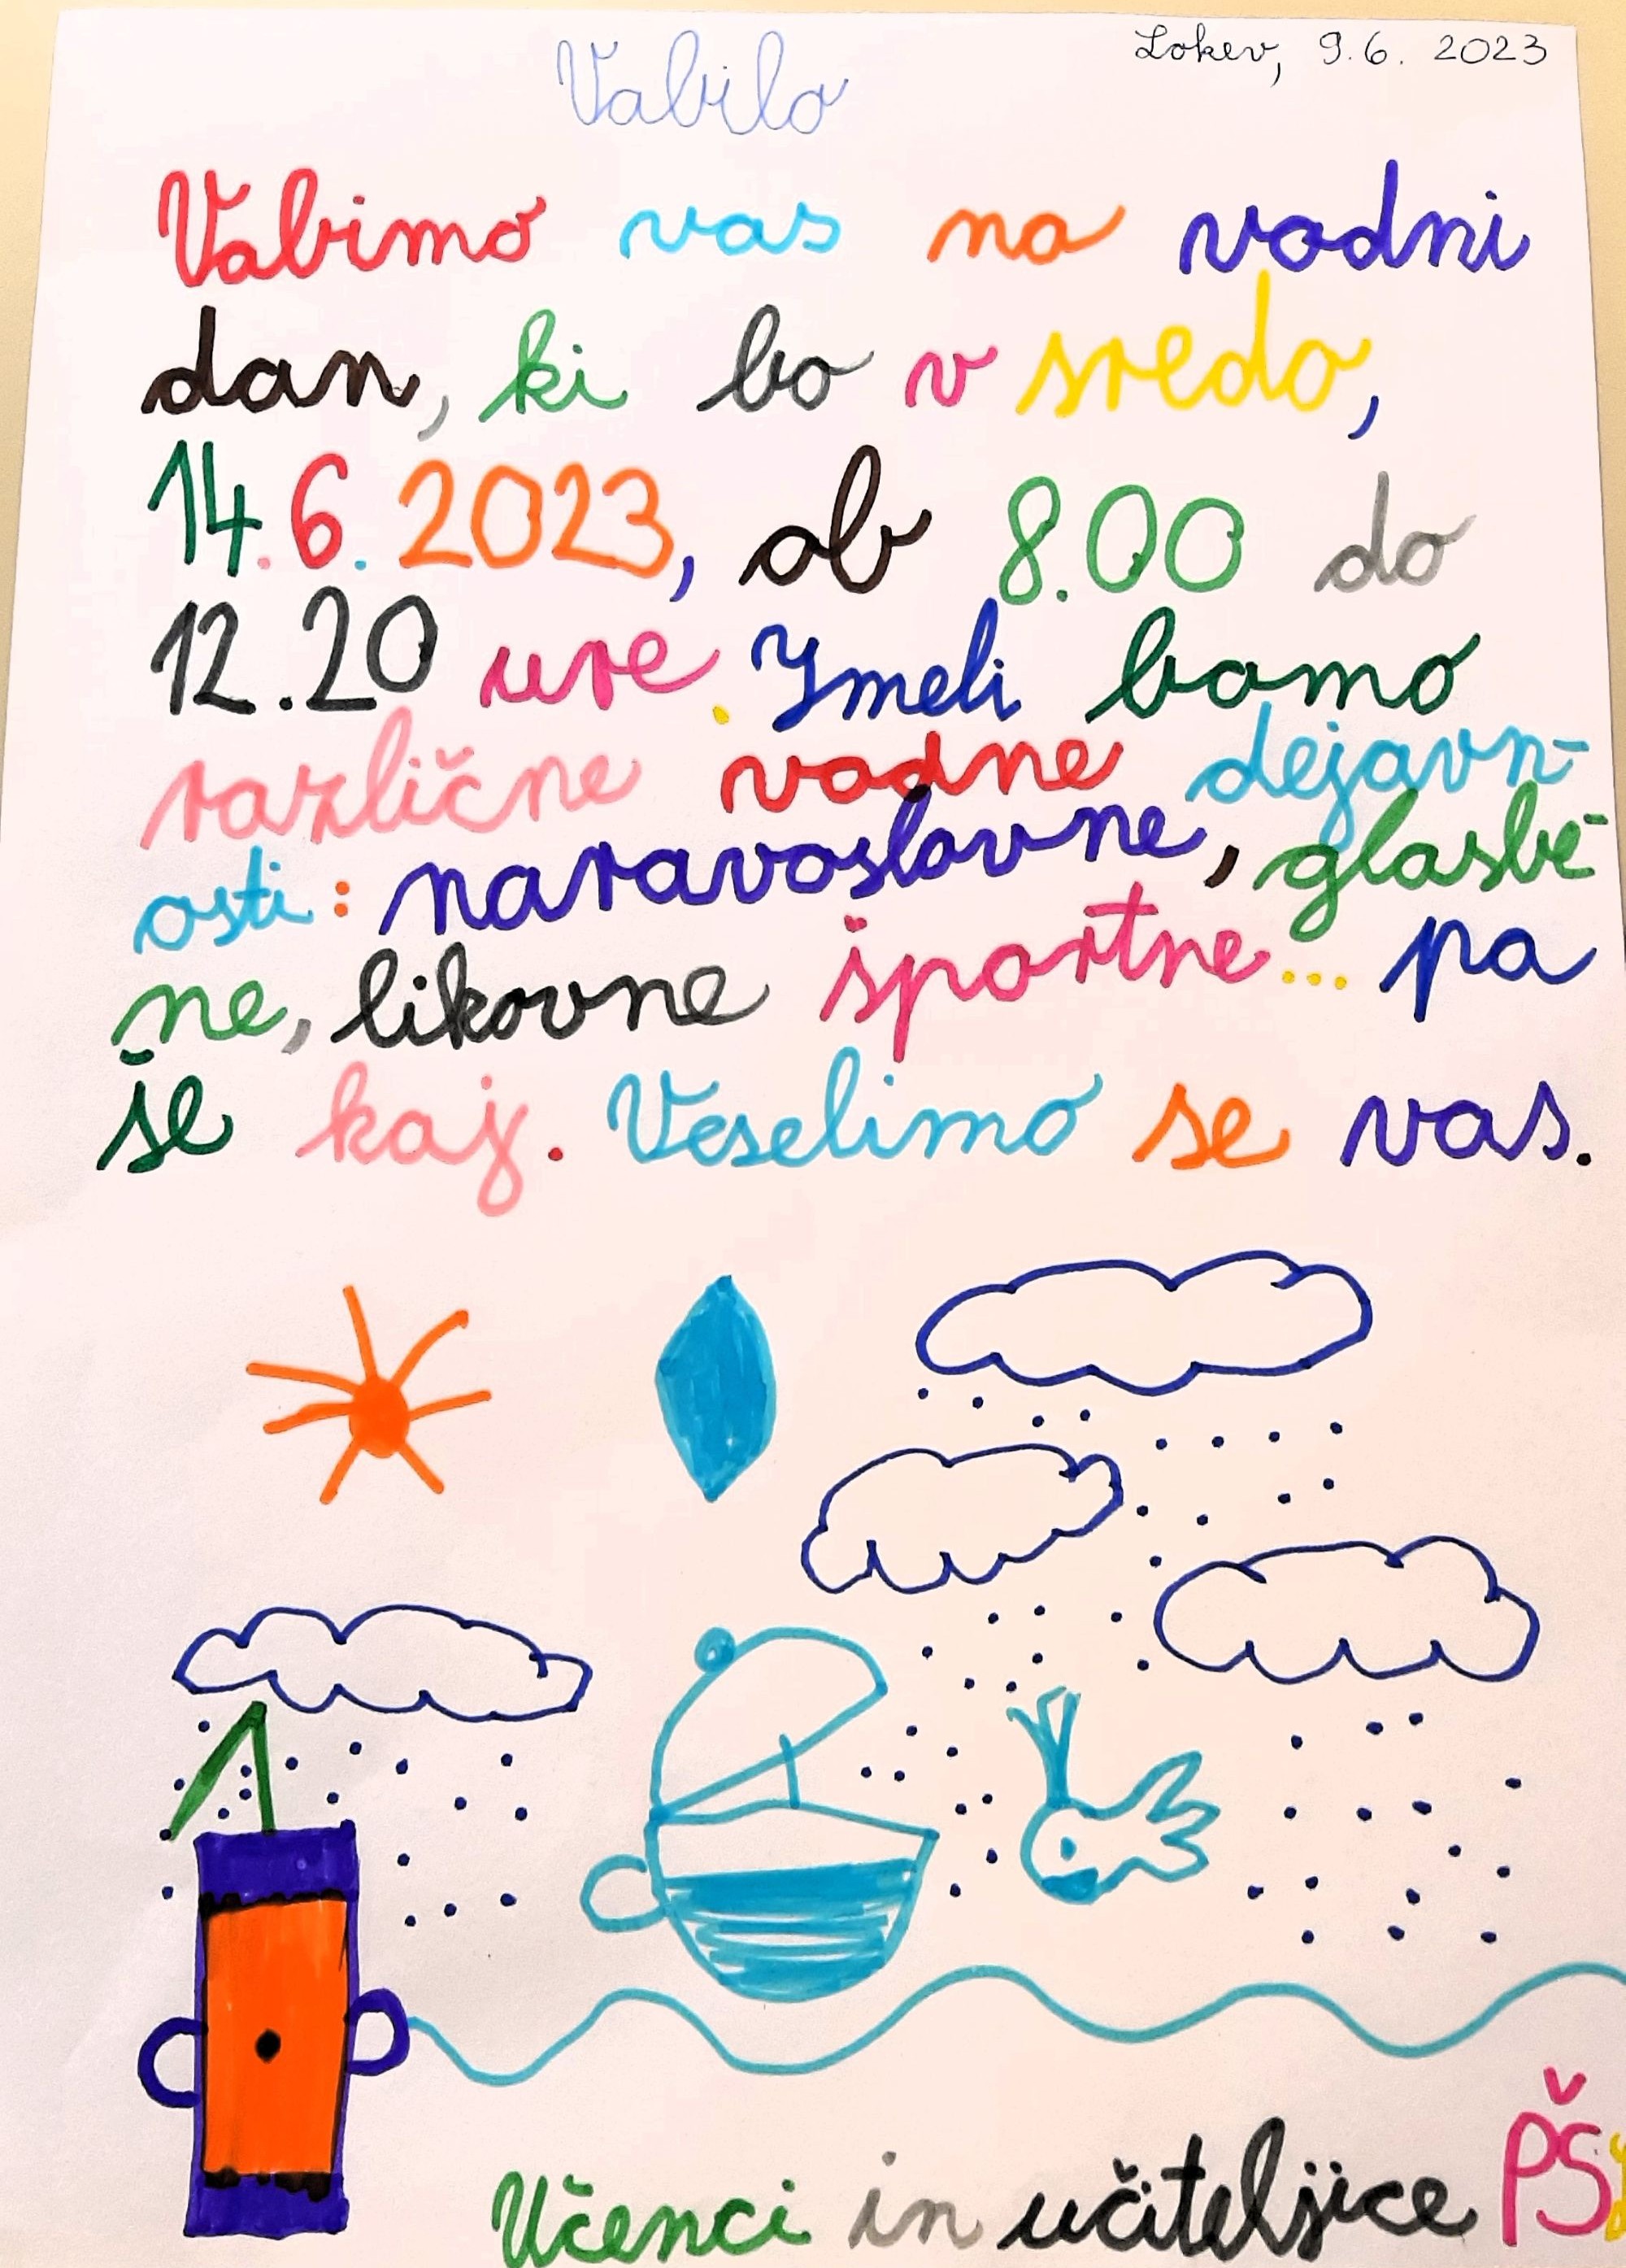 Lokev, 9.6. 2023
Vabilo
Vabimo vas na vodni
dan, ki bo v sredo,
14.6.2023, ob 8.00 do
12.20 ure. Imeli bomo
različne vodne dejavn-
osti: naravoslovne, glasbe-
ne, likovne športne... pa
še kaj. Veselimo se vas.
Učenci in učiteljice PŠ